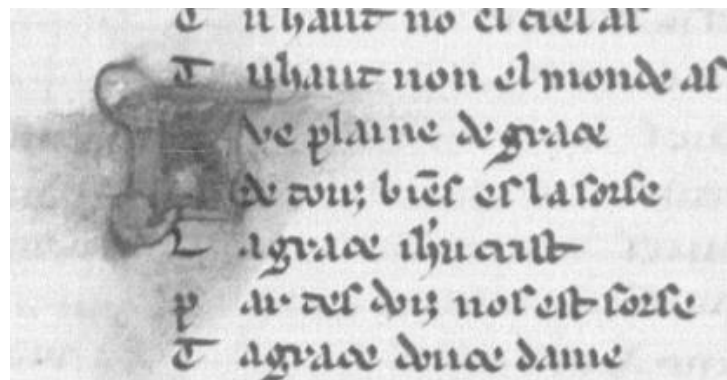 T u haut no el ciel as
T u haut non el monde as
A ve plaine de grace
de touz biēs es la sorse
L a grace ihū crist
P ar tes douz nos est sorse
T a grace douce dame